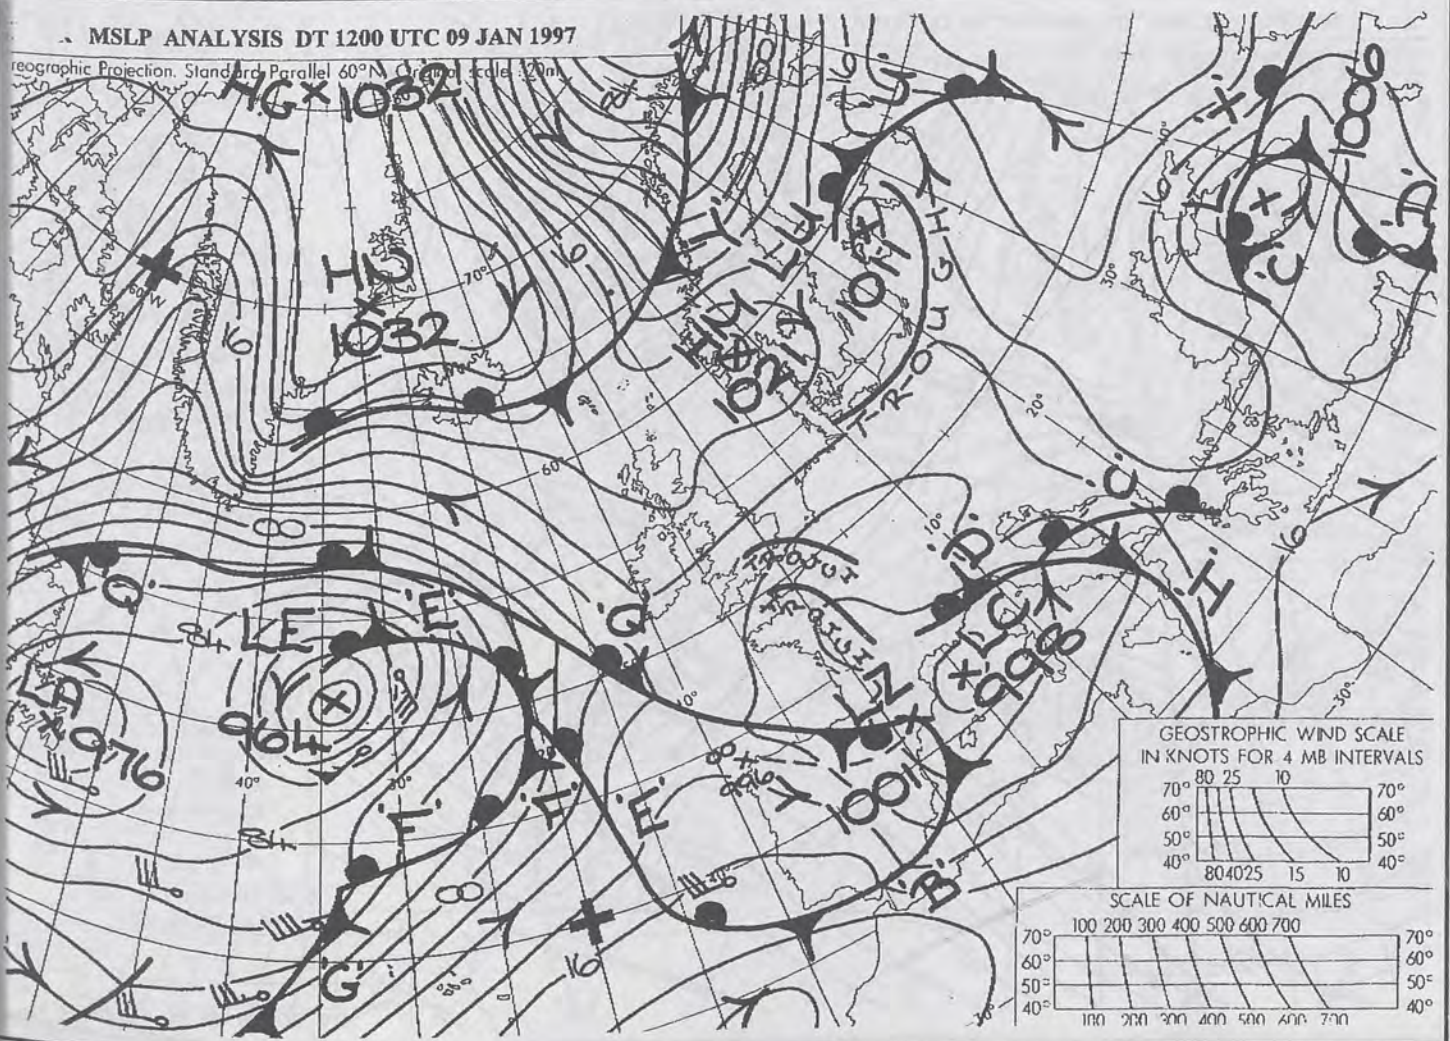 MSLP ANALYSIS DT 1200 UTC 09 JAN 1997
reographic Projection. Standard Parallel 60°N. Original scale :20m
HG × 1032
HN
1032
16
16
60°W
70°
'Y'
LU
LY
HM
1021
1017
TROUGH
'U'
16
'X'
1006
'D'
L
'C'
16
30°
20°
60°
10°
'C'
'D'
'H'
16
LC
998
TROUGH
TROUGH
'Q'
00
'E'
'Q'
LE
964
84
LA
976
40°
30°
20°
10°
84
00
'F'
'F'
'E'
'G'
16
LZ
1001
996
'B'
30°
GEOSTROPHIC WIND SCALE
IN KNOTS FOR 4 MB INTERVALS
80 25 10
70° 70°
60° 60°
50° 50°
40° 40°
80 40 25 15 10
SCALE OF NAUTICAL MILES
100 200 300 400 500 600 700
70° 70°
60° 60°
50° 50°
40° 40°
100 200 300 400 500 600 700